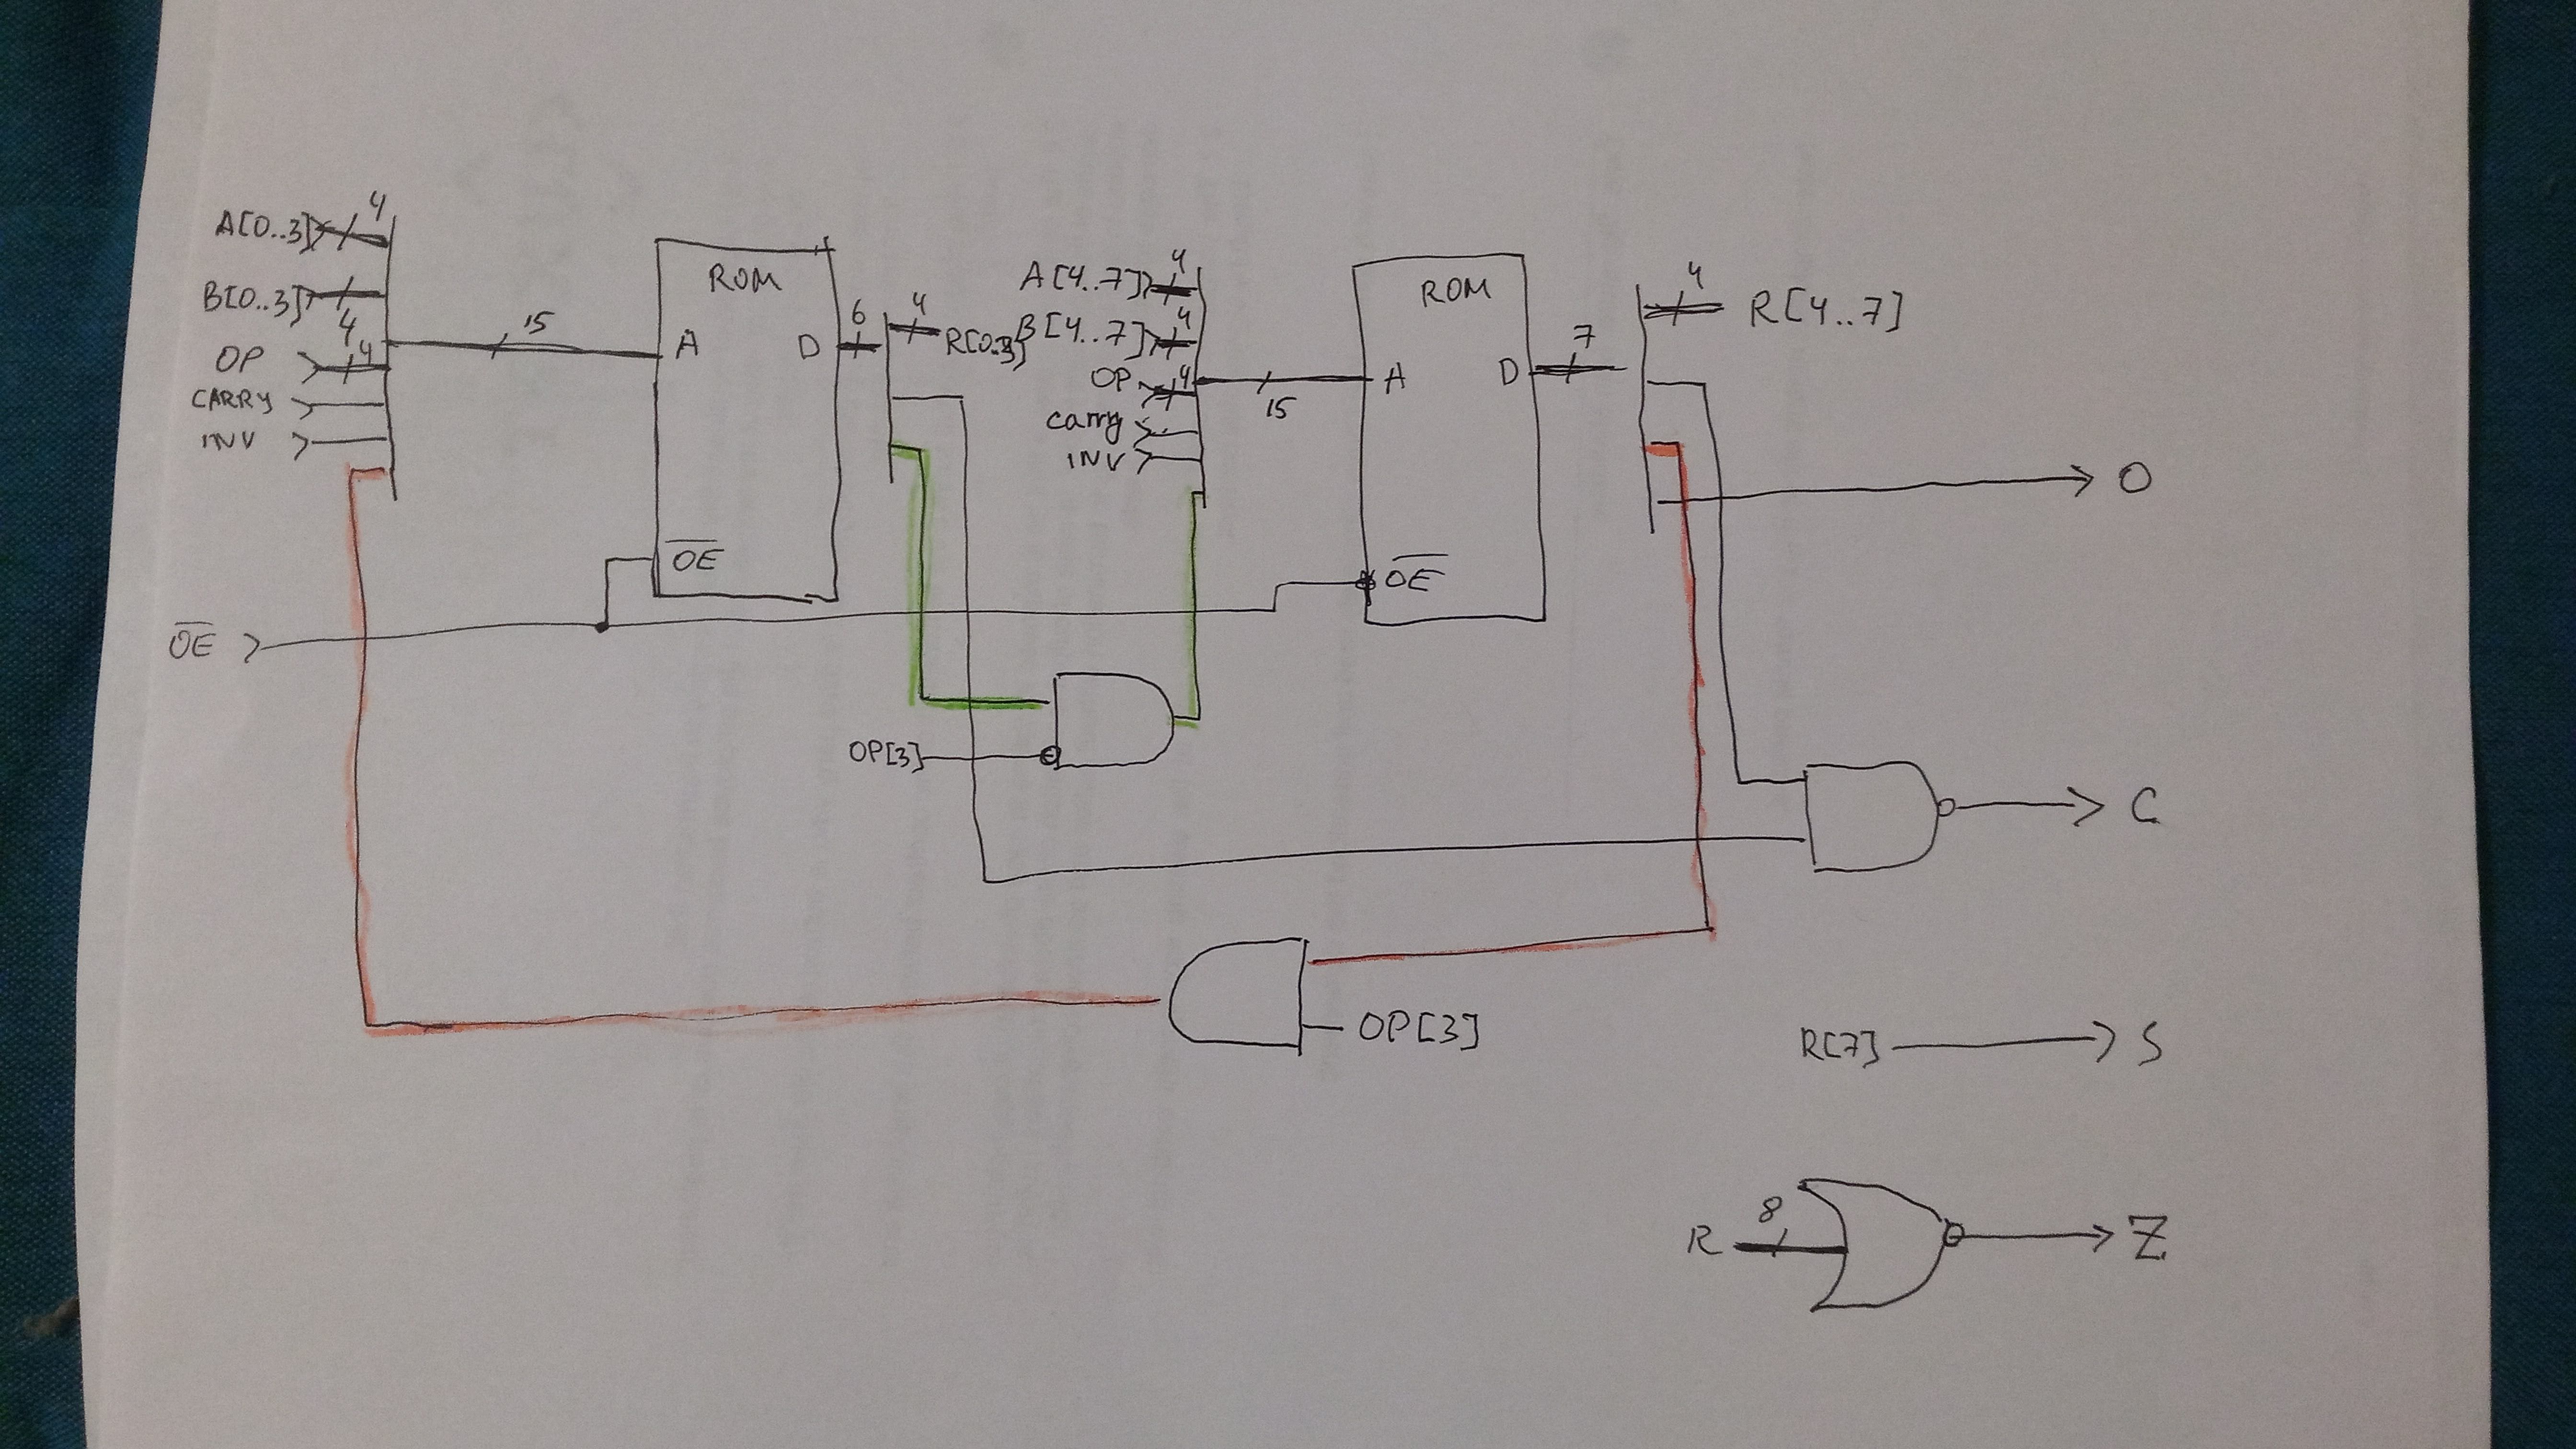 A[0..3] 4
B[0..3]
4
OP 4
CARRY
INV
15
ROM
A
D
OE
6
4
R[0..3]
A[4..7] 4
B[4..7] 4
OP 4
carry
INV
15
ROM
A
D
OE
7
4
R[4..7]
O
OE
OP[3]
C
OP[3]
R[7] S
R 8 Z